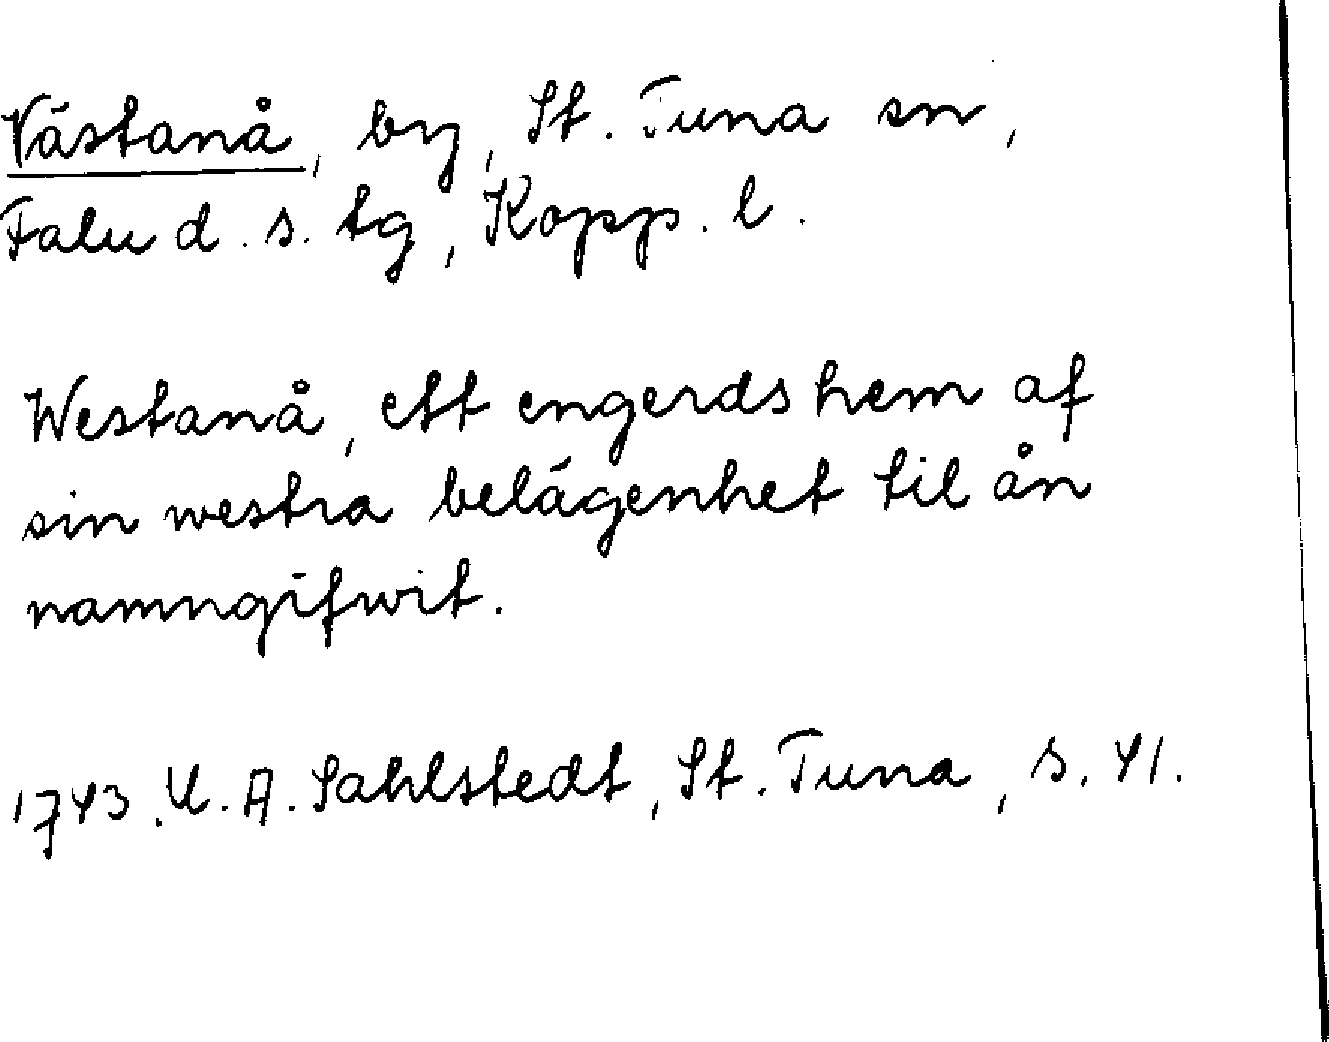 Västanå, by, St. Tuna sn,
Falu d. s. tg, Kopp. l.
Westanå, ett engerds hem af
sin westra belägenhet til ån
namngifwit.
1743. U. A. Sahlstedt, St. Tuna, s. 41.